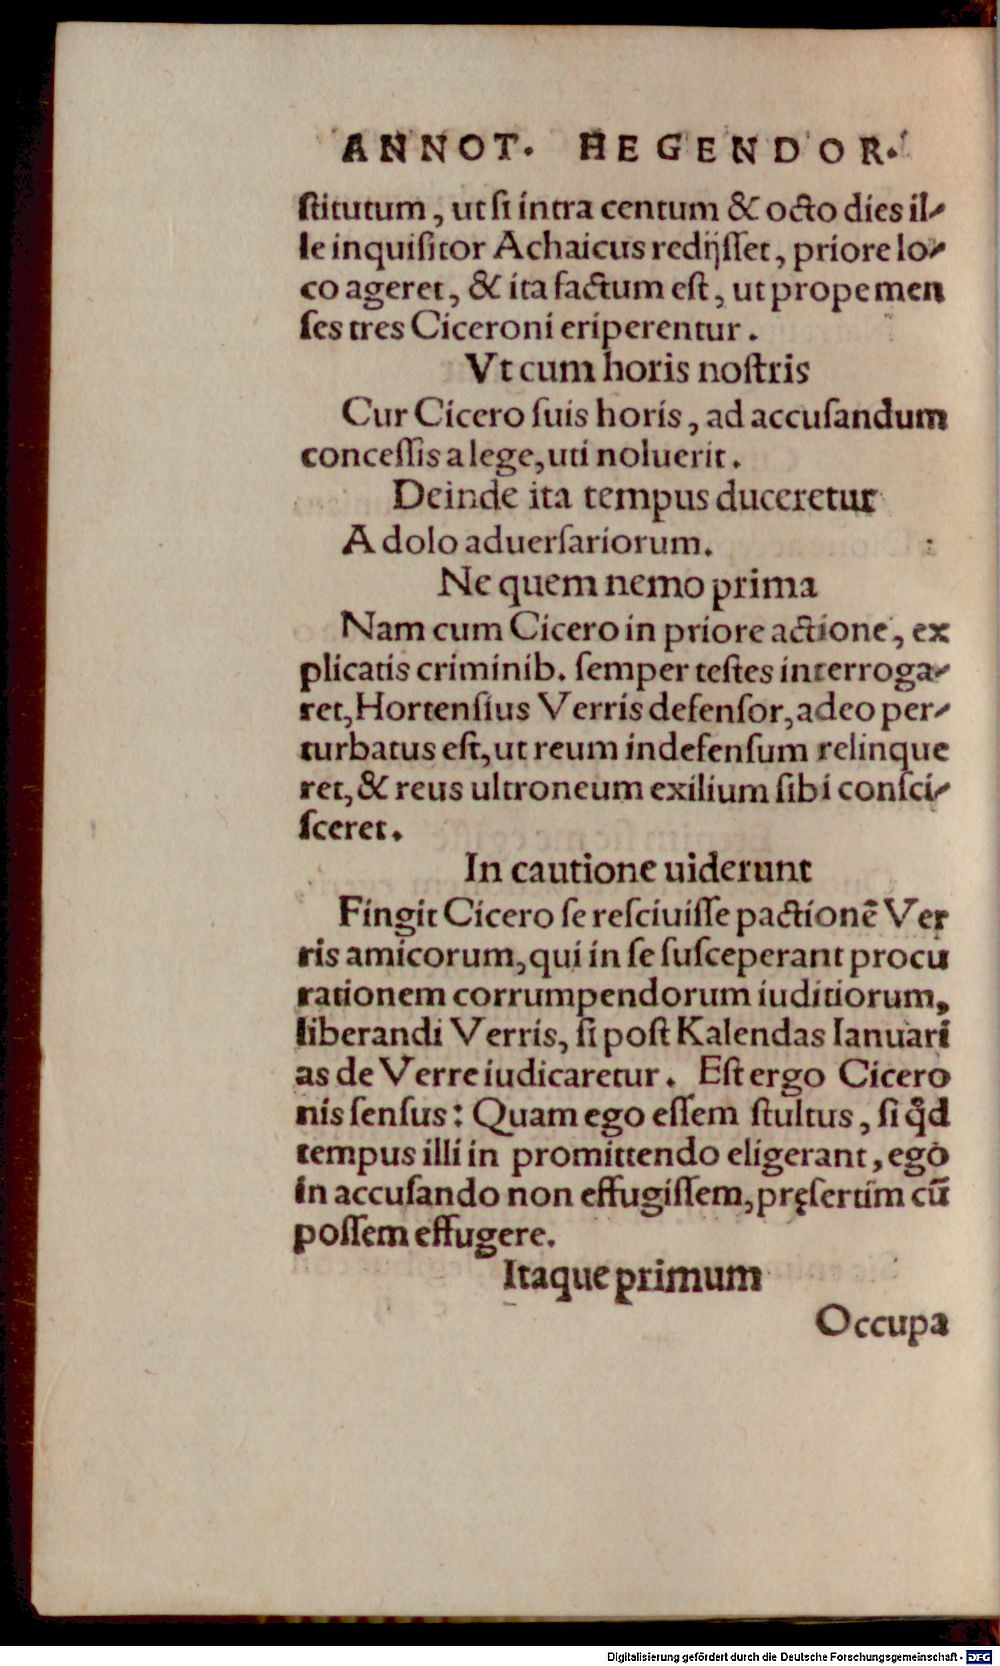 ANNOT. HEGENDOR.
ſtitutum, ut ſi intra centum & octo dies il-
le inquiſitor Achaicus redijſſet, priore lo-
co ageret, & ita factum eſt, ut prope men
ſes tres Ciceroni eriperentur.
Vt cum horis noſtris
Cur Cicero ſuis horis, ad accuſandum
conceſſis a lege, uti noluerit.
Deinde ita tempus duceretur
A dolo aduerſariorum.
Ne quem nemo prima
Nam cum Cicero in priore actione, ex
plicatis criminib. ſemper teſtes interroga-
ret, Hortenſius Verris defenſor, adeo per-
turbatus eſt, ut reum indefenſum relinque
ret, & reus ultroneum exilium ſibi conſci-
ſceret.
In cautione uiderunt
Fingit Cicero ſe reſciuiſſe pactionē Ver
ris amicorum, qui in ſe ſuſceperant procu
rationem corrumpendorum iuditiorum,
liberandi Verris, ſi poſt Kalendas Ianuari
as de Verre iudicaretur. Eſt ergo Cicero
nis ſenſus: Quam ego eſſem ſtultus, ſi qd̛
tempus illi in promittendo eligerant, ego
in accuſando non effugiſſem, pręſertim cū
poſſem effugere.
Itaque primum
Occupa
Digitalisierung gefördert durch die Deutsche Forschungsgemeinschaft - DFG